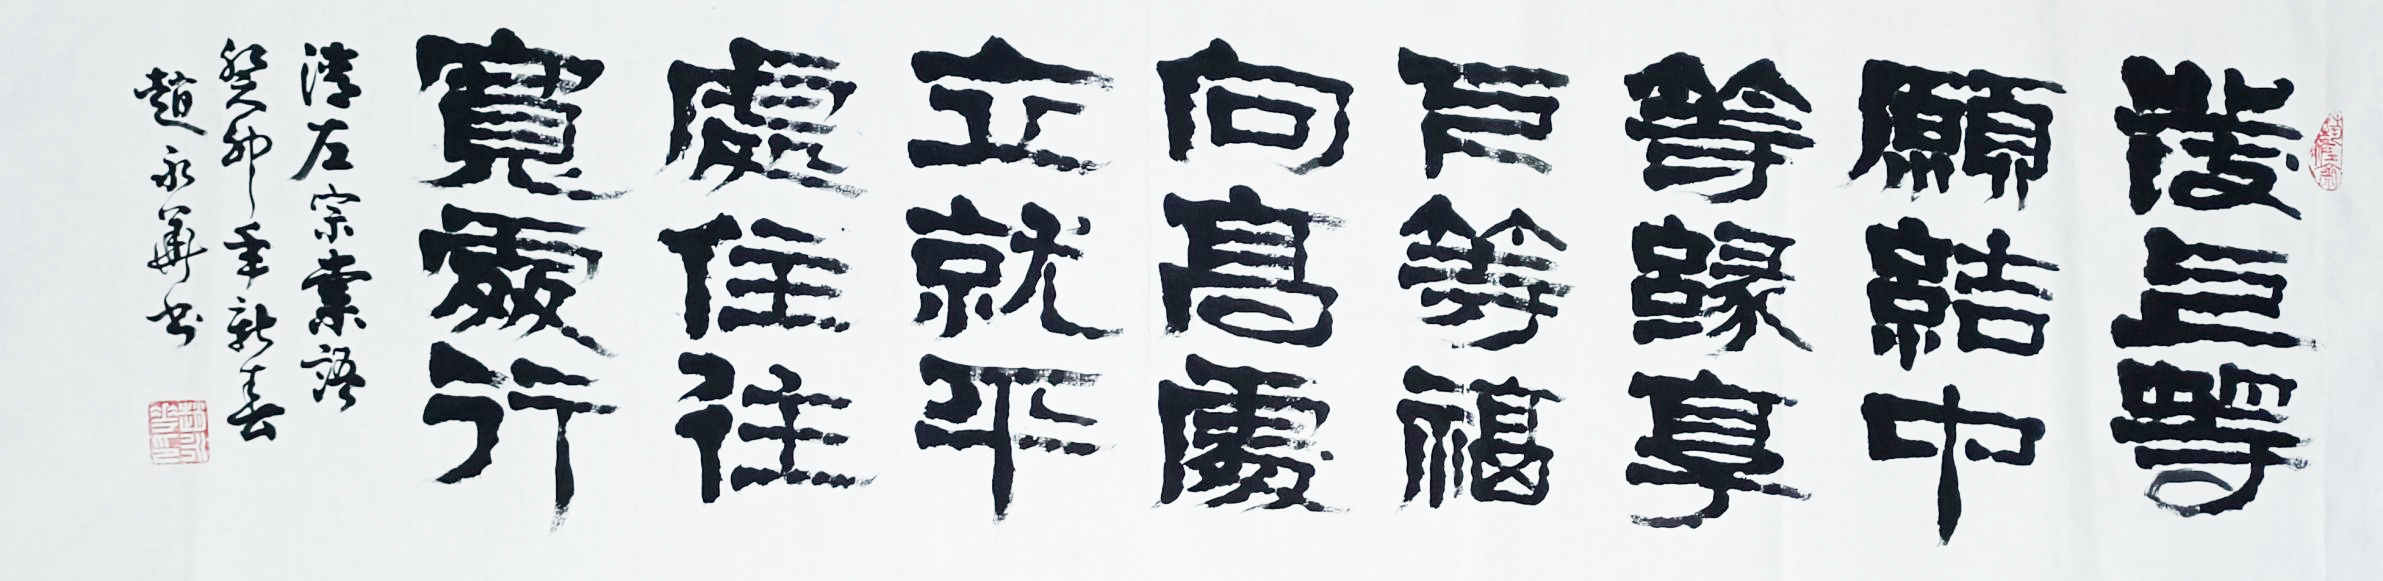 發上等
願結中
等緣享
下等福
向高處
立就平
處住往
寬處行
清左宗棠語
癸卯年新春
趙永華书